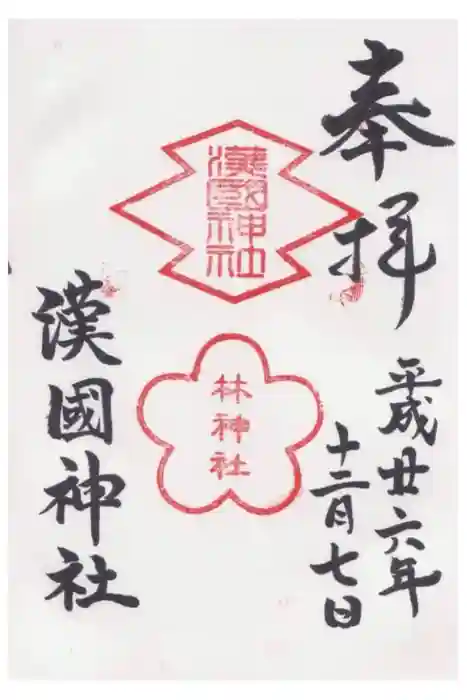 奉拝
平成廿六年
十二月七日
漢國神社
林神社
漢國神社